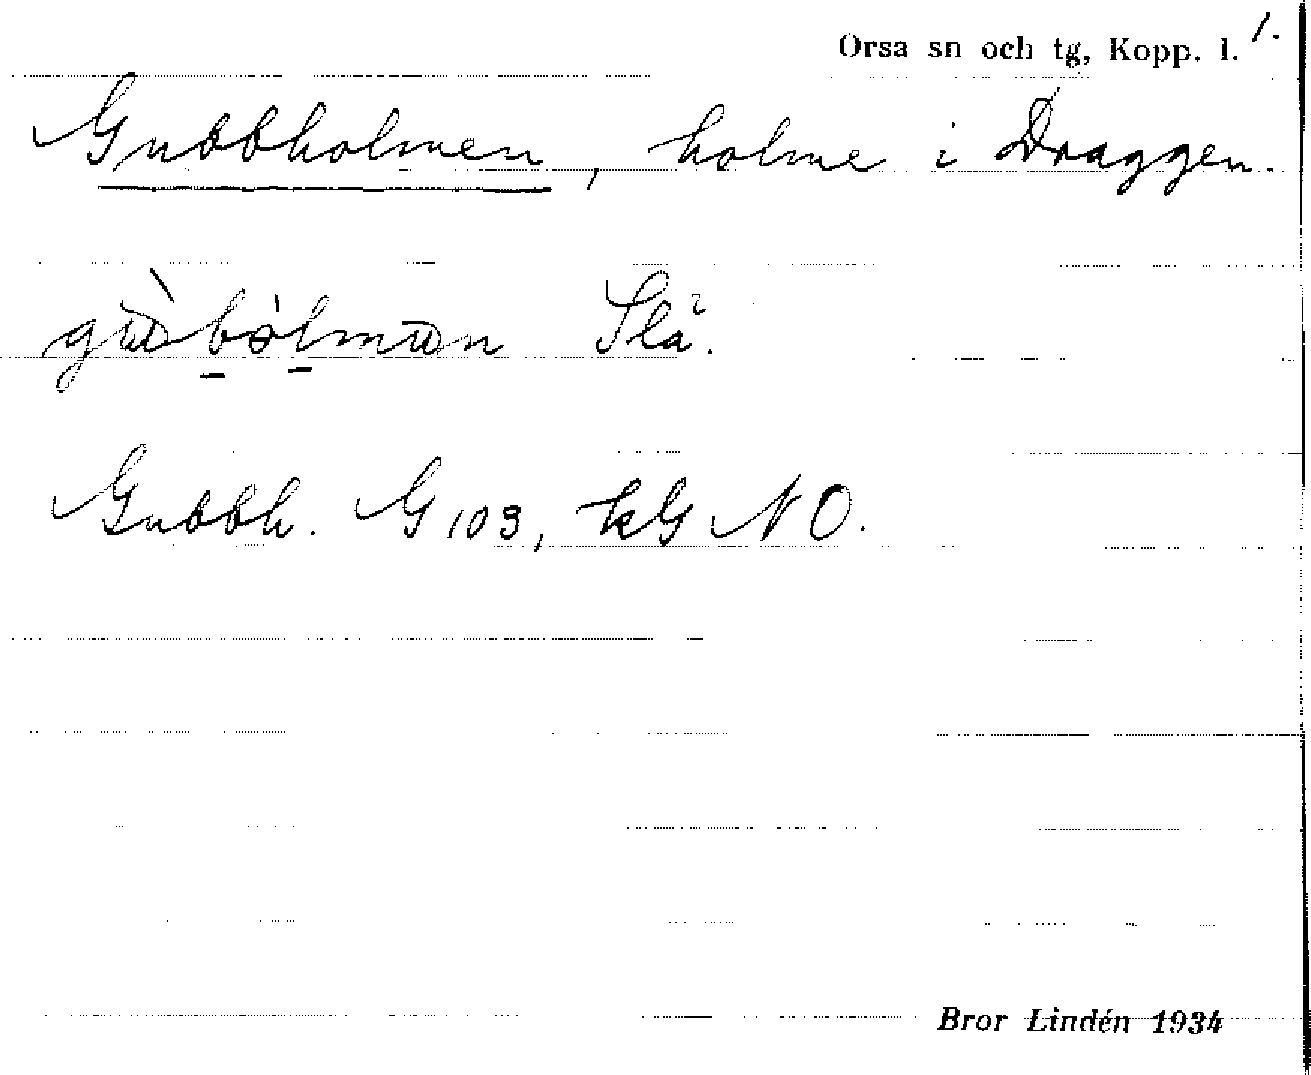 Orsa sn och tg, Kopp. l. 1.
Gubbholmen, holme i Draggen.
Slä.
Gubbh. G 103, kG NO.
Bror Lindén 1934